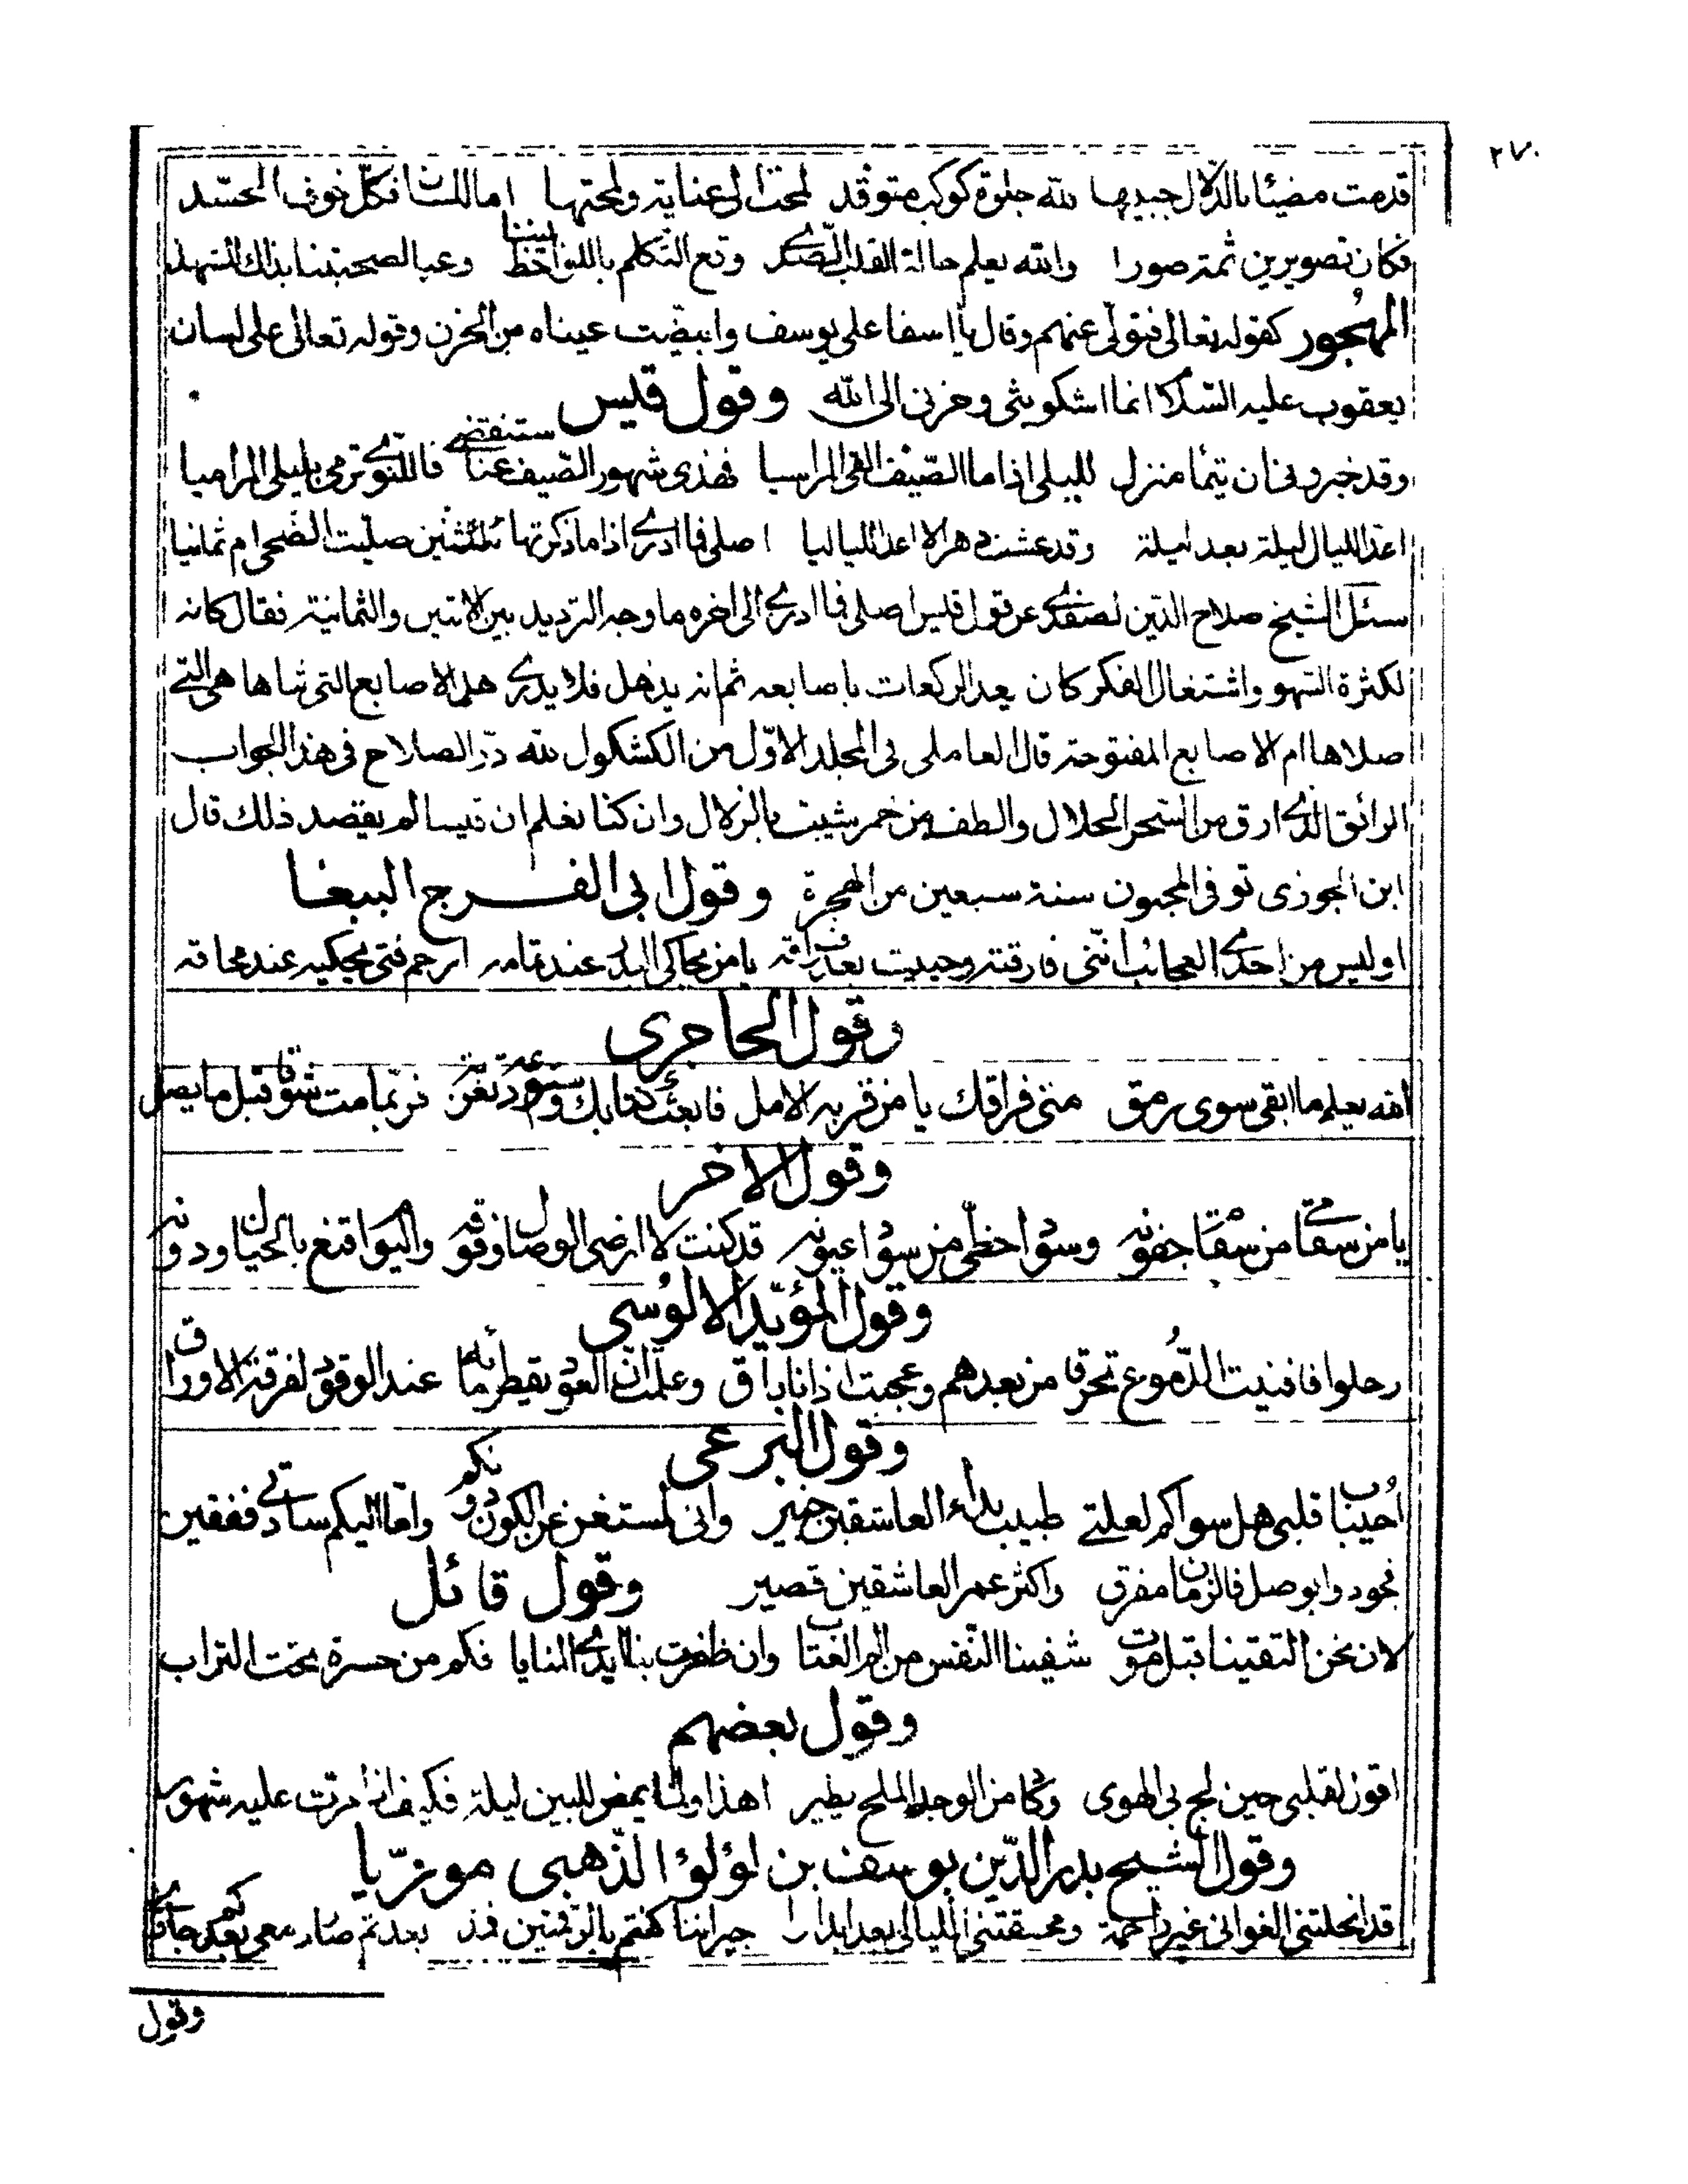 ٢٧٠
قدمت مضيئا بالدلال جبيدها لله جلوة كوكبه متوقد لمحت الى عناية ولمحتها اما اللسان فكل خوف الحسد
فكان تصويرين ثمة صورا والله يعلم حالة القلب الصدى وقع التكلم باللواحظ بيننا
المهجور كقوله تعالى فتولى عنهم وقال يا اسفا على يوسف وابيضت عيناه من الحزن وقوله تعالى على لسان
يعقوب عليه السلام انما اشكو بثى وحزنى الى الله وقول قيس
وقد خبرونى ان تيما منزل لليلى اذا ما الصيف القى المراسيا فهذى شهور الصيف عنا ستنقضى فما للنوى ترمى بليلى المراميا
اعد الليالى ليلة بعد ليلة وقد عشت دهرا لا اعد اللياليا اصلى فما ادرى اذا ما ذكرتها أثنتين صليت الضحى ام ثمانيا
سئل الشيخ صلاح الدين الصفدى عن قول قيس اصلى فما ادرى الى اخره ما وجه الترديد بين الاثنين والثمانية فقال كانه
لكثرة السهو واشتغال الفكر كان يعد الركعات باصابعه ثم انه يذهل فلا يدرى هل الاصابع التى ثناها هى التى
صلاها ام الاصابع المفتوحة قال العاملى فى المجلد الاول من الكشكول لله در الصلاح فى هذا الجواب
الرائق الذى ارق من السحر الحلال والطف من خمر شيبت بالزلال وان كنا نعلم ان قيسا لم يقصد ذلك قال
ابن الجوزى توفى المجنون سنة سبعين من الهجرة وقول ابى الفرج الببغا
اوليس من احدى العجائب اننى فارقته وحييت بعد فراقه يا من يحاكى البدر عند تمامه ارحم فتى يحكيه عند محاقه
وقول الحاجرى
الله يعلم ما ابقى سوى رمق منى فراقك يا من قربه الامل فابعث كتابك واستودعه تعزية فربما مت شوقا قبل ما يصل
وقول الاخر
يا من سقامى من سقام جفونه وسواد حظى من سواد عيونه قد كنت لا ارضى الوصال وفوقه واليوم اقنع بالخيال ودونه
وقول المؤيد الالوسى
رحلوا فافنيت الدموع تحرقا من بعدهم وعجبت اذ انا باق وعلمت ان العود يقطر ماؤه عند الوقود لفرقة الاوراق
وقول البرعى
أحباب قلبى هل سواكم لعلتى طبيب بداء العاشقين خبير وانى لمستغن عن الكون دونكم واما اليكم سادتى ففقير
فجودوا بوصل فالزمان مفرق واكثر عمر العاشقين قصير وقول قائل
لان نحن التقينا قبل موت شفينا النفس من الم العتاب وان ظفرت بنا ايدى المنايا فكم من حسرة تحت التراب
وقول بعضهم
اقول لقلبى حين لج بى الهوى وكاد من الوجد الملح يطير اهذا ولما يمض للبين ليلة فكيف اذا مرت عليه شهور
وقول الشيخ بدر الدين يوسف بن لؤلؤ الذهبى موريا
قد انحلتنى الغوانى غير راحمة ومحقتنى الليالى بعد ابدارا جيراننا كنتم بالرقمتين فمذ بعدتم صار
وقول